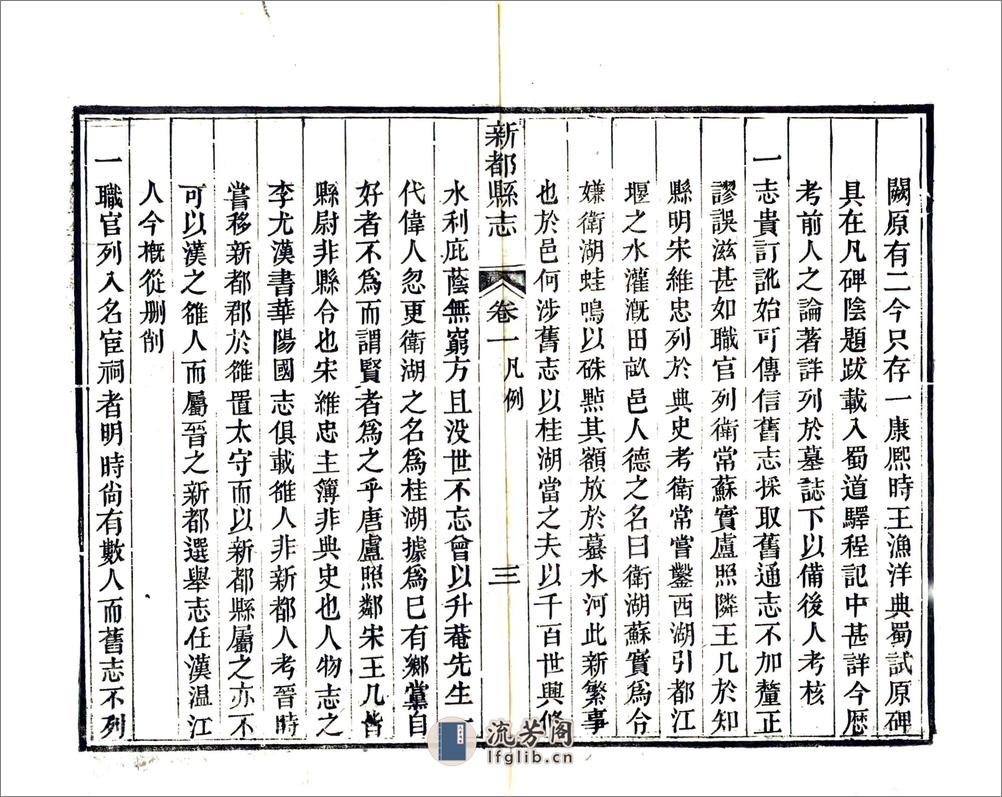 闕原有二今只存一康熙時王漁洋典蜀試原碑
具在凡碑陰題跋載入蜀道驛程記中甚詳今歷
考前人之論著詳列於墓誌下以備後人考核
一志貴訂訛始可傳信舊志採取舊通志不加釐正
謬誤滋甚如職官列衛常蘇實盧照隣王几於知
縣明宋維忠列於典史考衛常嘗鑿西湖引都江
堰之水灌漑田畝邑人德之名曰衛湖蘇實為令
嫌衛湖蛙鳴以硃㸃其額放於蟇水河此新繁事
也於邑何涉舊志以桂湖當之夫以千百世興修
新都縣志 卷一 凡例 三
水利庇蔭無窮方且没世不忘曾以升菴先生一
代偉人忽更衛湖之名爲桂湖據爲已有鄉黨自
好者不爲而謂賢者爲之乎唐盧照鄰宋王几皆
縣尉非縣令也宋維忠主簿非典史也人物志之
李尤漢書華陽國志俱載雒人非新都人考晉時
嘗移新都郡於雒置太守而以新都縣屬之亦不
可以漢之雒人而屬晉之新都選舉志任漢温江
人今槪從删削
一職官列入名宦祠者明時尙有數人而舊志不列
流芳阁
lfglib.cn